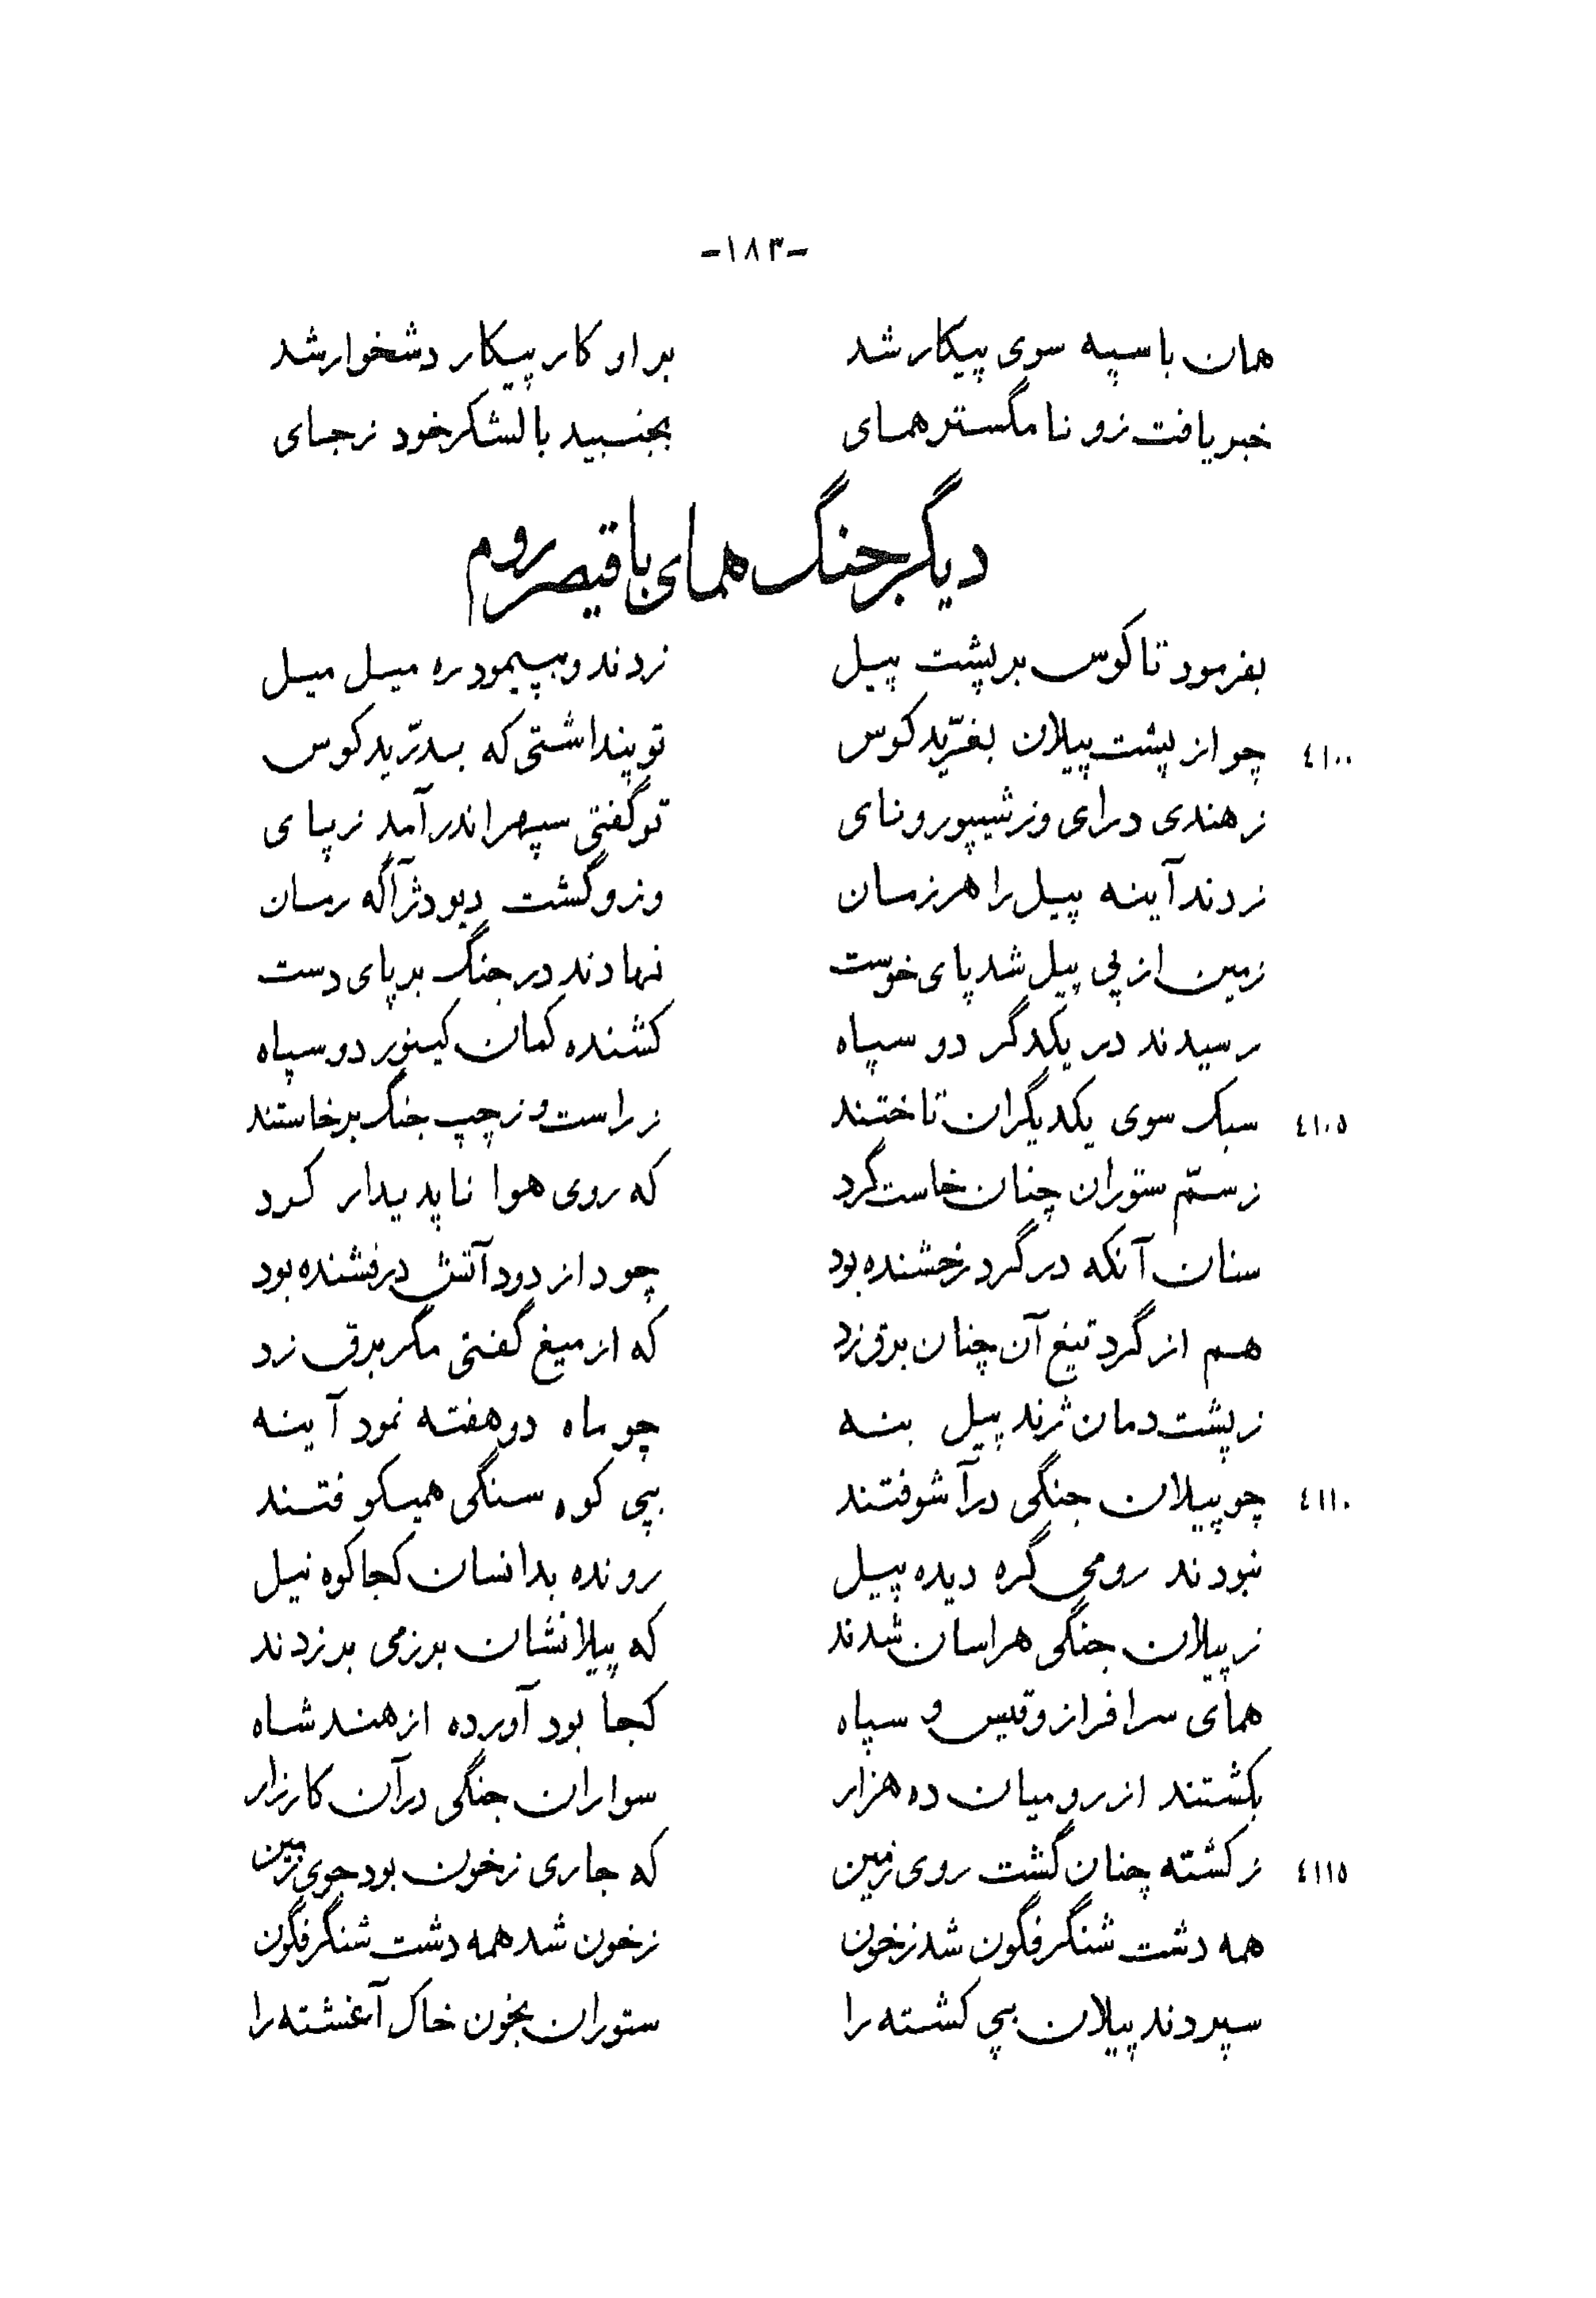 -۱۸۳-
همان با سپه سوی پیکار شد بر او کار پیکار دشخوار شد
خبر یافت زو نامگستر همای بجنبید با لشکر خود ز جای
دیگر جنگ همای با قیصر روم
بفرمود تا کوس بر پشت پیل زدند و بپیمود ره میل میل
٤١٠٠ چو از پشت پیلان بغرّید کوس تو پنداشتی که بدرّید کوس
ز هندی درای و ز شیپور و نای تو گفتی سپهر اندر آمد ز پای
زدند آینه پیل را هر زمان وزو گشت دیو دژآگه رمان
زمین از پی پیل شد پای خوست نهادند در جنگ بر پای دست
رسیدند در یکدگر دو سپاه کشنده کمان کینه‌ور دو سپاه
٤١٠٥ سبک سوی یکدیگران تاختند ز راست و ز چپ جنگ برخاستند
ز سمّ ستوران چنان خاست گرد که روی هوا ناپدیدار کرد
سنان آنکه در گرد رخشنده بود چو در از دود آتش درفشنده بود
هم از گرد تیغ آن چنان برق زد که از میغ گفتی مگر برق زد
ز پشت دمان ژنده پیل بنه چو ماه دو هفته نمود آینه
٤١١٠ چو پیلان جنگی درآشوفتند بپی کوه سنگی همیکوفتند
نبودند رومی گره دیده پیل رونده بدانسان کجا کوه نیل
ز پیلان جنگی هراسان شدند که پیلانشان بر زمی بر زدند
همای سرافراز و قیس و سپاه کجا بود آورده از هند شاه
بکشتند از رومیان ده هزار سواران جنگی در آن کارزار
٤١١٥ ز کشته چنان گشت روی زمین که جاری ز خون بود جوی زمین
همه دشت شنگرفگون شد ز خون ز خون شد همه دشت شنگرفگون
سپردند پیلان بپی کشته را ستوران بخون خاک آغشته را